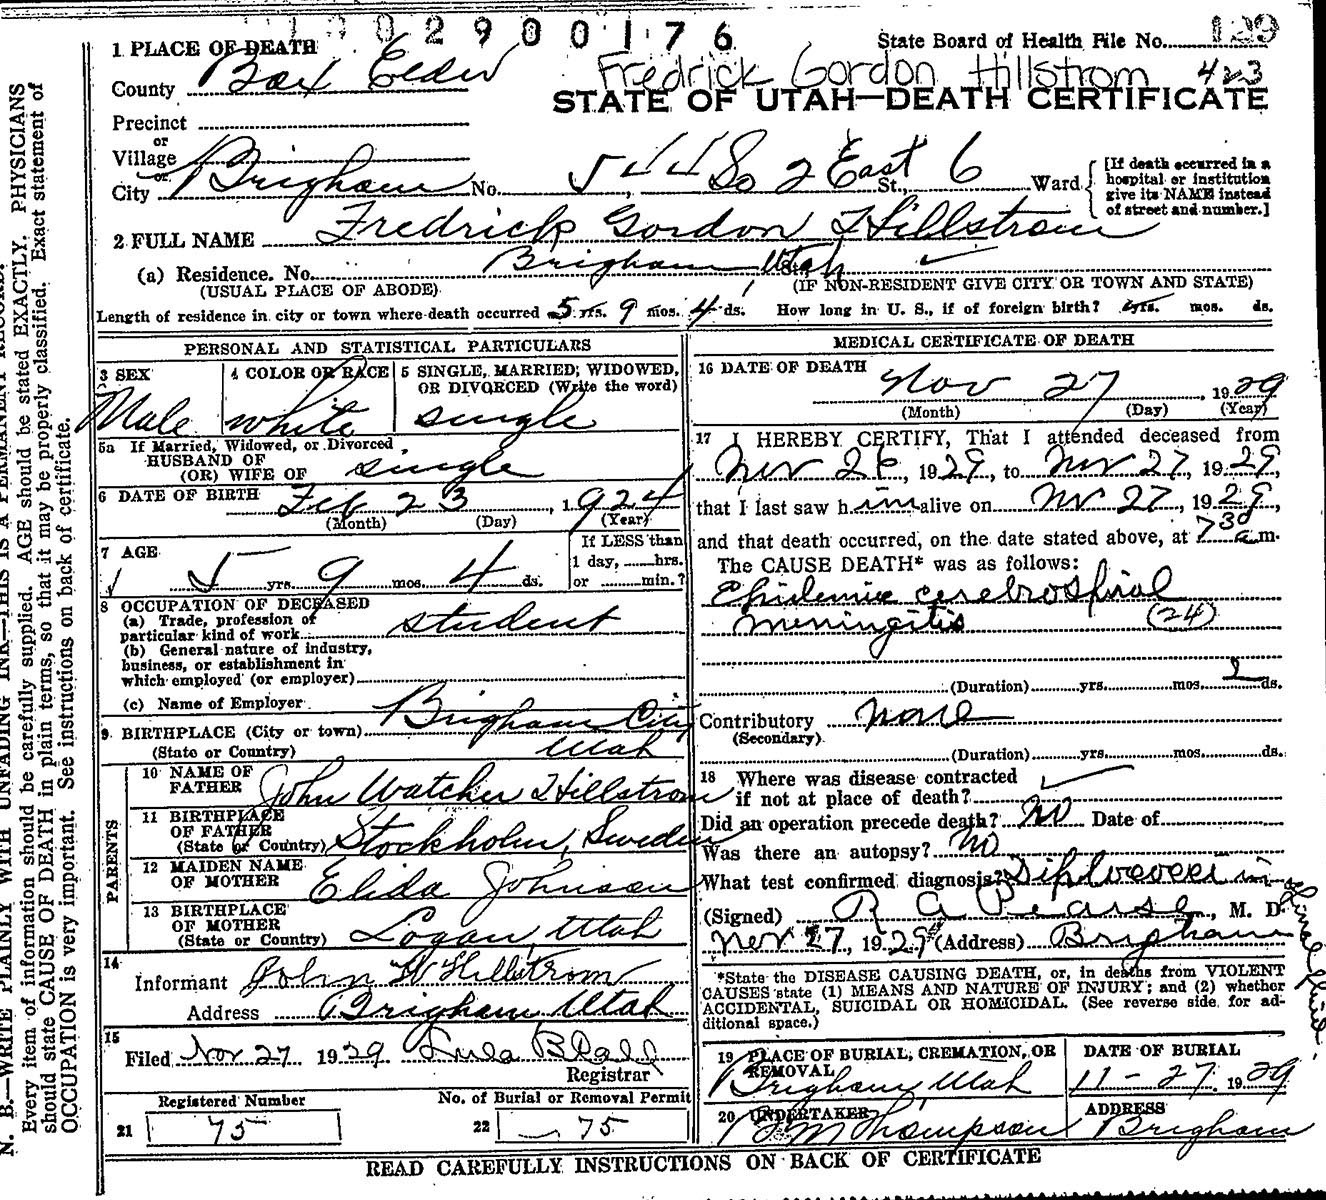 2900176
State Board of Health File No. 129
Fredrick Gordon Hillstrom 423
STATE OF UTAH—DEATH CERTIFICATE
1 PLACE OF DEATH
County Box Elder
Precinct
or
Village
or
City Brigham No. 544 So 2 East St., 6 Ward
[If death occurred in a hospital or institution give its NAME instead of street and number.]
2 FULL NAME Fredrick Gordon Hillstrom
(a) Residence. No. Brigham Utah
(USUAL PLACE OF ABODE) (IF NON-RESIDENT GIVE CITY OR TOWN AND STATE)
Length of residence in city or town where death occurred 5 yrs. 9 mos. 4 ds. How long in U. S., if of foreign birth? yrs. mos. ds.
PERSONAL AND STATISTICAL PARTICULARS
3 SEX 4 COLOR OR RACE 5 SINGLE, MARRIED, WIDOWED, OR DIVORCED (Write the word)
Male white single
5a If Married, Widowed, or Divorced
HUSBAND OF
(OR) WIFE OF single
6 DATE OF BIRTH Feb 23, 1924
(Month) (Day) (Year)
7 AGE 5 yrs. 9 mos. 4 ds.
If LESS than
1 day, hrs.
or min.?
8 OCCUPATION OF DECEASED
(a) Trade, profession or
particular kind of work student
(b) General nature of industry,
business, or establishment in
which employed (or employer)
(c) Name of Employer
9 BIRTHPLACE (City or town) Brigham City
(State or Country) Utah
PARENTS
10 NAME OF FATHER John Watcher Hillstrom
11 BIRTHPLACE OF FATHER
(State or Country) Stockholm, Sweden
12 MAIDEN NAME OF MOTHER Elida Johnson
13 BIRTHPLACE OF MOTHER
(State or Country) Logan, Utah
14
Informant John W Hillstrom
Address Brigham Utah
15
Filed Nov 27 1929 Lula
Registrar
Registered Number No. of Burial or Removal Permit
21 75 22 75
MEDICAL CERTIFICATE OF DEATH
16 DATE OF DEATH Nov 27, 1929
(Month) (Day) (Year)
17 I HEREBY CERTIFY, That I attended deceased from
Nov 26, 1929, to Nov 27, 1929,
that I last saw him alive on Nov 27, 1929,
and that death occurred, on the date stated above, at 7 30 a.m.
The CAUSE DEATH* was as follows:
Epidemic cerebrospinal
meningitis (24)
(Duration) yrs. mos. 2 ds.
Contributory None
(Secondary)
(Duration) yrs. mos. ds.
18 Where was disease contracted
if not at place of death?
Did an operation precede death? No Date of
Was there an autopsy? No
What test confirmed diagnosis? Diplococci in spinal fluid.
(Signed) R A Pearse, M. D.
Nov 27, 1929 (Address) Brigham
*State the DISEASE CAUSING DEATH, or, in deaths from VIOLENT
CAUSES state (1) MEANS AND NATURE OF INJURY; and (2) whether
ACCIDENTAL, SUICIDAL OR HOMICIDAL. (See reverse side for ad-
ditional space.)
19 PLACE OF BURIAL, CREMATION, OR REMOVAL DATE OF BURIAL
Brigham, Utah 11-27, 1929
20 UNDERTAKER ADDRESS
Thompson Brigham
READ CAREFULLY INSTRUCTIONS ON BACK OF CERTIFICATE
N. B.—WRITE PLAINLY WITH UNFADING INK—THIS IS A PERMANENT RECORD.
Every item of information should be carefully supplied. AGE should be stated EXACTLY. PHYSICIANS
should state CAUSE OF DEATH in plain terms, so that it may be properly classified. Exact statement of
OCCUPATION is very important. See instructions on back of certificate.